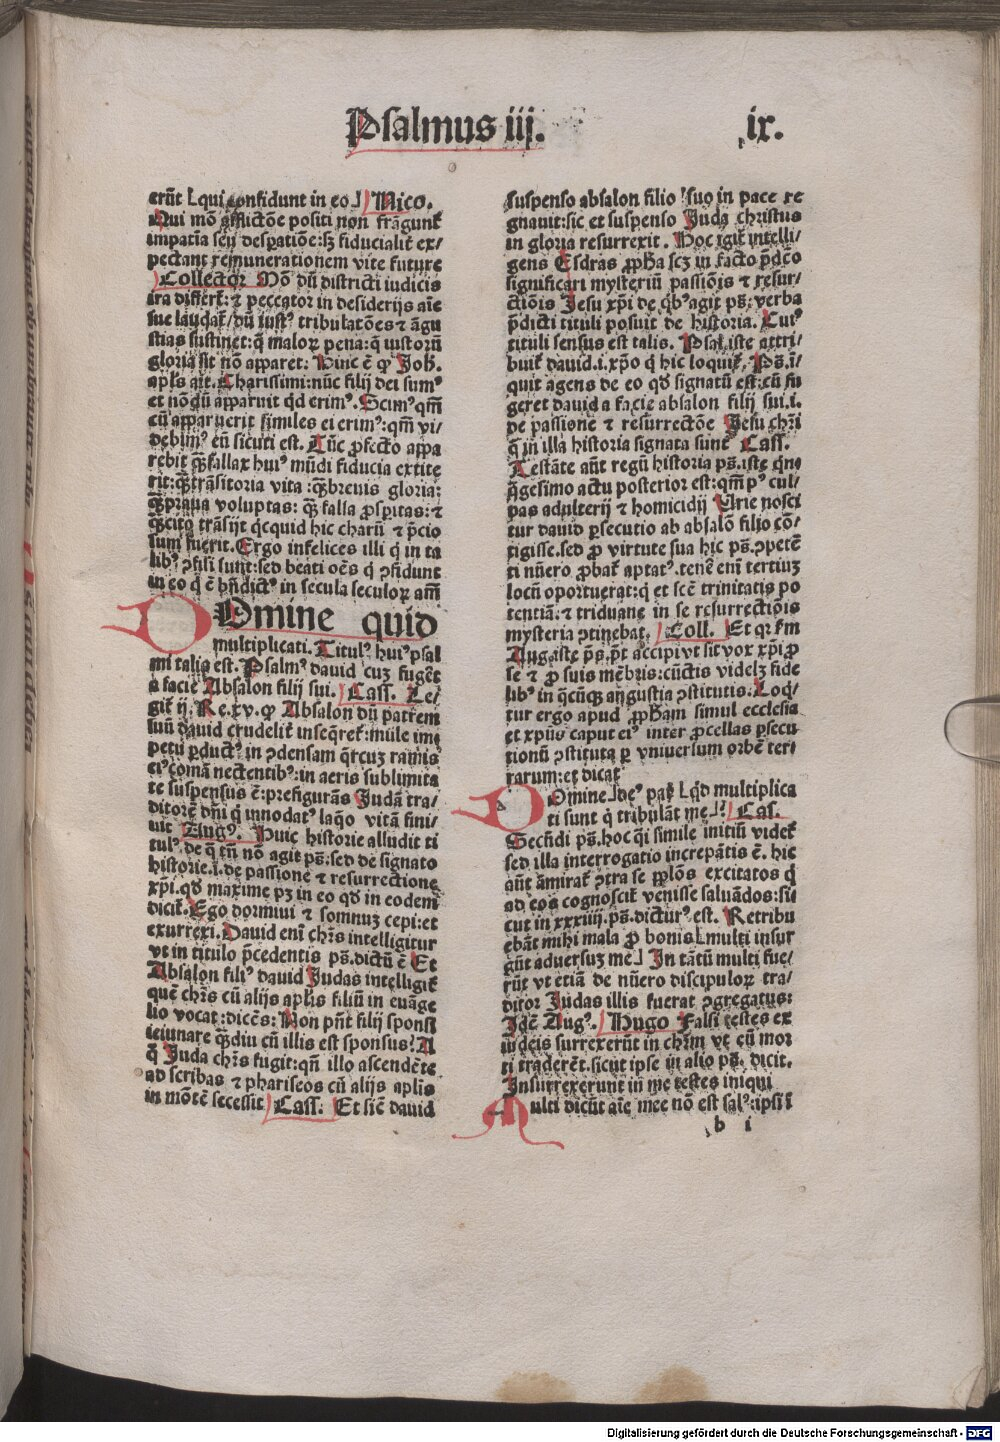 Psalmus iij.
ix.
erūt ⌊qui confidunt in eo⌋ Nico.
Qui mō afflictōe positi non frāgunt᷑
impatiā seu desꝑatiōe: sꝫ fiducialit᷑ ex/
pectant remunerationem vite future
Collector Mō dū districti iudicis
ira differt᷑: ⁊ peccator in desiderijs aīe
sue laudat᷑/dū iustꝰ tribulatōes ⁊ āgu
stias sustinet: q̄ maloꝝ pena: q̄ iustorū
gloria sit nō apparet: Hinc ē ꝙ Joh̄.
apl̄s ait. Charissimi: nūc filij dei sumꝰ
et nōdū apparuit qd erimꝰ. Scimꝰ qm̄
cū apparuerit similes ei erimꝰ: qm̄ vi/
debimꝰ eū sicuti est. Tūc ꝓfecto appa
rebit q̄ꝫ fallax huiꝰ mūdi fiducia extite
rit: q̄ꝫ trāsitoria vita: q̄ꝫ breuis gloria:
q̄ꝫ praua voluptas: q̄ꝫ falla ꝓsꝑitas: ⁊
q̄ꝫ cito trāsijt qc̄quid hic charū ⁊ p̄cio
sum fuerit. Ergo infelices illi q̄ in ta
libꝰ ꝯfisi sunt: sed beati oēs q̄ ꝯfidunt
in eo q̄ ē bn̄dictꝰ in secula seculoꝝ amē
DOmine quid
multiplicati. Titulꝰ huiꝰ psal
mi talis est. Psalmꝰ dauid cuꝫ fugēt
a facie Absalon filij sui. Cass. Le/
git᷑ ij. Re. xv. ꝙ Absalon dū patrem
suū dauid crudelit᷑ inseqret᷑: mule im
petu ꝑductꝰ in ꝯdensam q̄rcuꝫ ramis
eiꝰ comā nectentibꝰ: in aeris sublimita
te suspensus ē: prefigurās Judā tra/
ditorē dn̄i q̄ innodatꝰ laq̄o vitā fini/
uit Augꝰ. Huic historie alludit ti
tulꝰ de q̄ tn̄ nō agit ps̄: sed de signato
historie. i. de passione ⁊ resurrectione
xp̄i. qd maxime pꝫ in eo qd in eodem
dicit᷑. Ego dormiui ⁊ somnuꝫ cepi: et
exurrexi. Dauid eni chr̄s intelligitur
vt in titulo p̄cedentis ps̄. dictū ē Et
Absalon filiꝰ dauid Judas intelligit᷑
quē chr̄s cū alijs apl̄is filiū in euāge
lio vocat: dicēs: Non pn̄t filij sponsi
ieiunare q̄ꝫdiu cū illis est sponsus? A
q̄ Juda chr̄s fugit: qn̄ illo ascendēte
ad scribas ⁊ phariseos cū alijs aplis
in mōtē secessit Cass. Et sic̄ dauid
suspenso absalon filio suo in pace re
gnauit: sic et suspenso Juda christus
in gloria resurrexit. Hoc igit᷑ intelli/
gens Esdras ꝓph̄a scꝫ in facto p̄dcō
significari mysteriū passiōis ⁊ resur/
ctiōis Jesu xp̄i de qbꝰ agit ps̄: verba
p̄dicti tituli posuit de historia. Cuiꝰ
tituli sensus est talis. Psal. iste attri/
buit᷑ dauid. i. xp̄o q̄ hic loquit᷑. Ps̄. in/
quit agens de eo qd signatū est: cū fu
geret dauid a facie absalon filij sui. i.
de passione ⁊ resurrectōe Jesu chr̄i
q̄ in illa historia signata sunt Cass.
Testāte aūt regū historia ps̄. iste q̄n
q̄gesimo actu posterior est: qm̄ pꝰ cul/
pas adulterij ⁊ homicidij Urie nosci
tur dauid ꝑsecutio ab absalō filio cō/
tigisse. sed ꝓ virtute sua hic ps̄. ꝯpetē
ti nūero ꝓbat᷑ aptatꝰ. tenē eni tertiuꝫ
locū oportuerat: q̄ et sc̄e trinitatis po
tentiā: ⁊ triduane in se resurrectiōis
mysteria ꝯtinebat. Coll. Et qꝛ fm
Aug. iste ps̄. pt̄ accipi vt sit vox xp̄i ꝓ
se ⁊ ꝓ suis mēbris: cūctis videlꝫ fide
libꝰ in q̄cūqꝫ angustia ꝯstitutis. Loq̄
tur ergo apud ꝓph̄am simul ecclesia
et xp̄us caput eiꝰ inter ꝓcellas ꝑsecu
tionū ꝯstituta ꝑ vniuersum orbē ter/
rarum: et dicat
DOmine⌋ deꝰ pat᷑ ⌊qd multiplica
ti sunt q̄ tribulāt me⌋? Cas.
Secn̄di ps̄. hoc qi simile initiū videt᷑
sed illa interrogatio increpātis ē. hic
aūt āmirat᷑ ꝯtra se ꝓplōs excitatos q̄
ad eos cognoscit᷑ venisse saluādos: si
cut in xxxiiij. ps̄. dicturꝰ est. Retribu
ebāt mihi mala ꝓ bonis ⌊multi insur
gūt aduersuꝫ me⌋ In tātū multi fue/
rūt vt etiā de nūero discipuloꝝ tra/
ditor Judas illis fuerat ꝯgregatus:
Idē Augꝰ. Hugo Falsi testes ex
iudeis surrexerūt in chr̄m vt eū mor
ti traderēt. sicut ipse in alio ps̄. dicit.
Insurrexerunt in me testes iniqui
Multi dicūt aīe mee nō est salꝰ: ipsi ī
b i
Digitalisierung gefördert durch die Deutsche Forschungsgemeinschaft - DFG